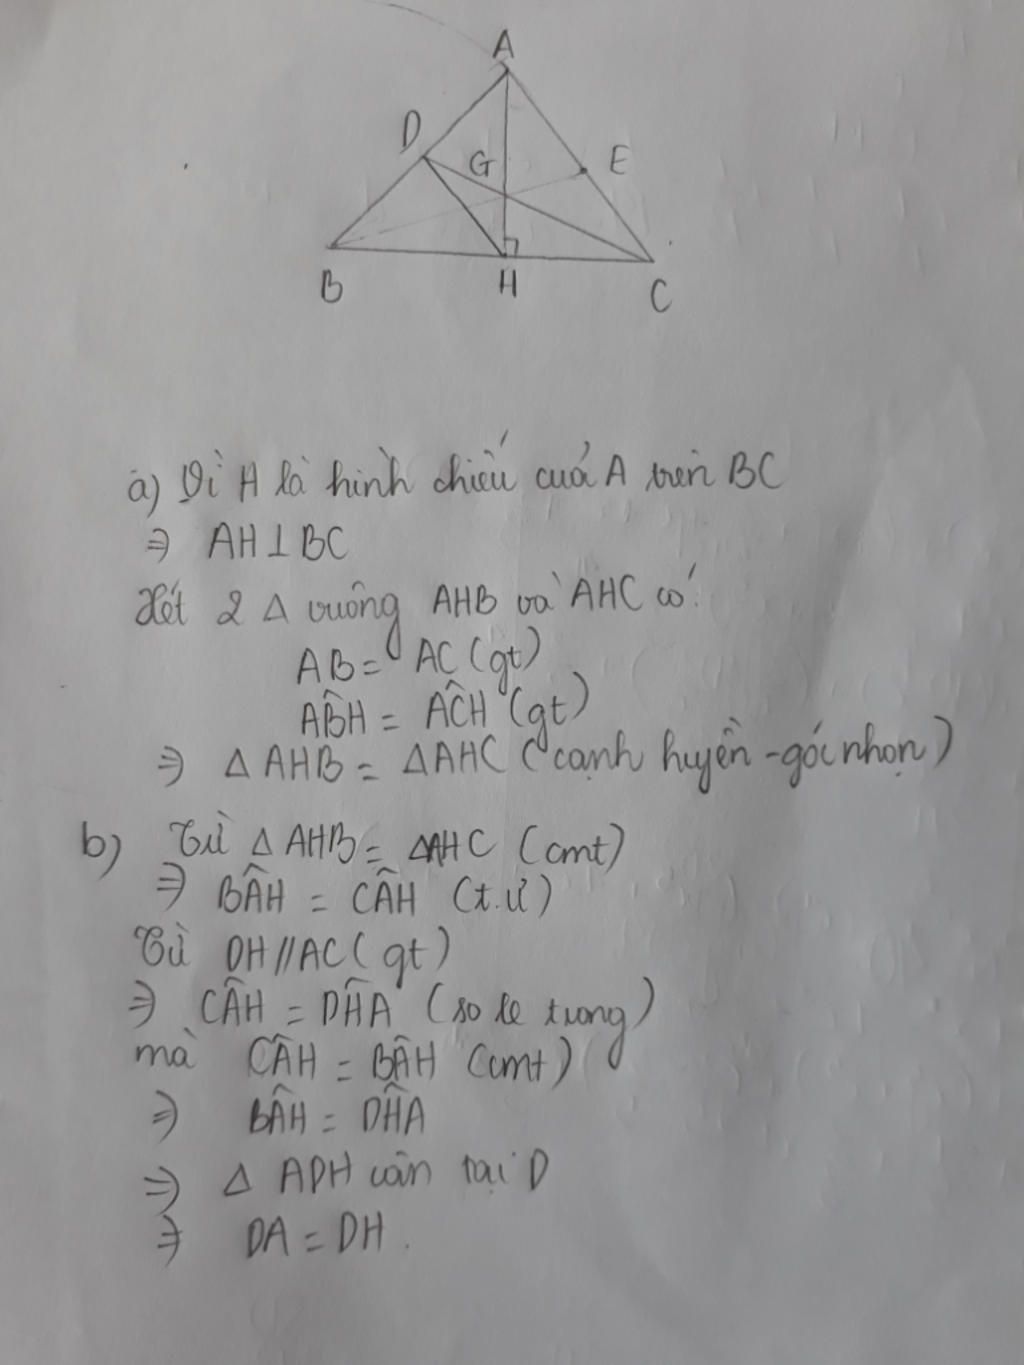 A
D
G
E
B
H
C
a) Vì H là hình chiếu của A trên BC
⇒ AH⊥BC
Xét 2 Δ vuông AHB và AHC có:
AB = AC (gt)
AB̂H = AĈH (gt)
⇒ ΔAHB = ΔAHC (cạnh huyền - góc nhọn)
b) Từ ΔAHB = ΔAHC (cmt)
⇒ BÂH = CÂH (t.ư)
Từ DH//AC (gt)
⇒ CÂH = DĤA (so le trong)
mà CÂH = BÂH (cmt)
⇒ BÂH = DĤA
⇒ Δ ADH cân tại D
⇒ DA = DH.